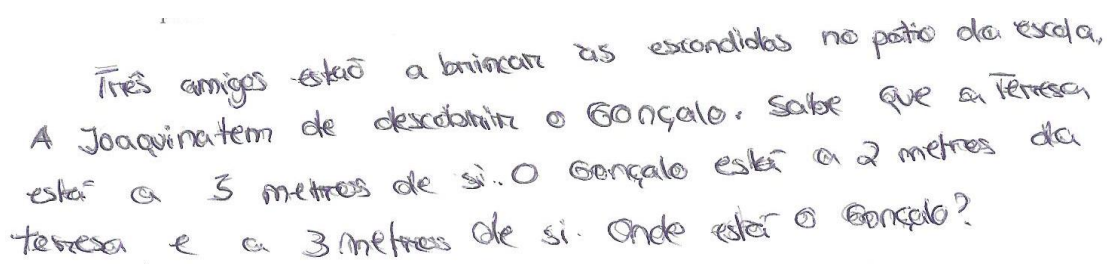 Três amigos estaõ a brincar às escondidas no pátio da escola,
A Joaquina tem de descobrir o Gonçalo. Sabe que a Teresa
está a 5 metros de si. O Gonçalo está a 2 metros da
teresa e a 3 metros de si. Onde está o Gonçalo?